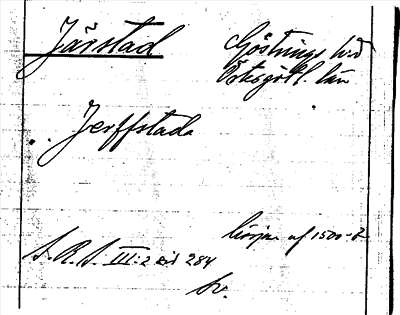 Järstad
Göstrings hd
Östergötl. län
Jerffstada
början af 1500-t
S.R.S. III:2 sid 284